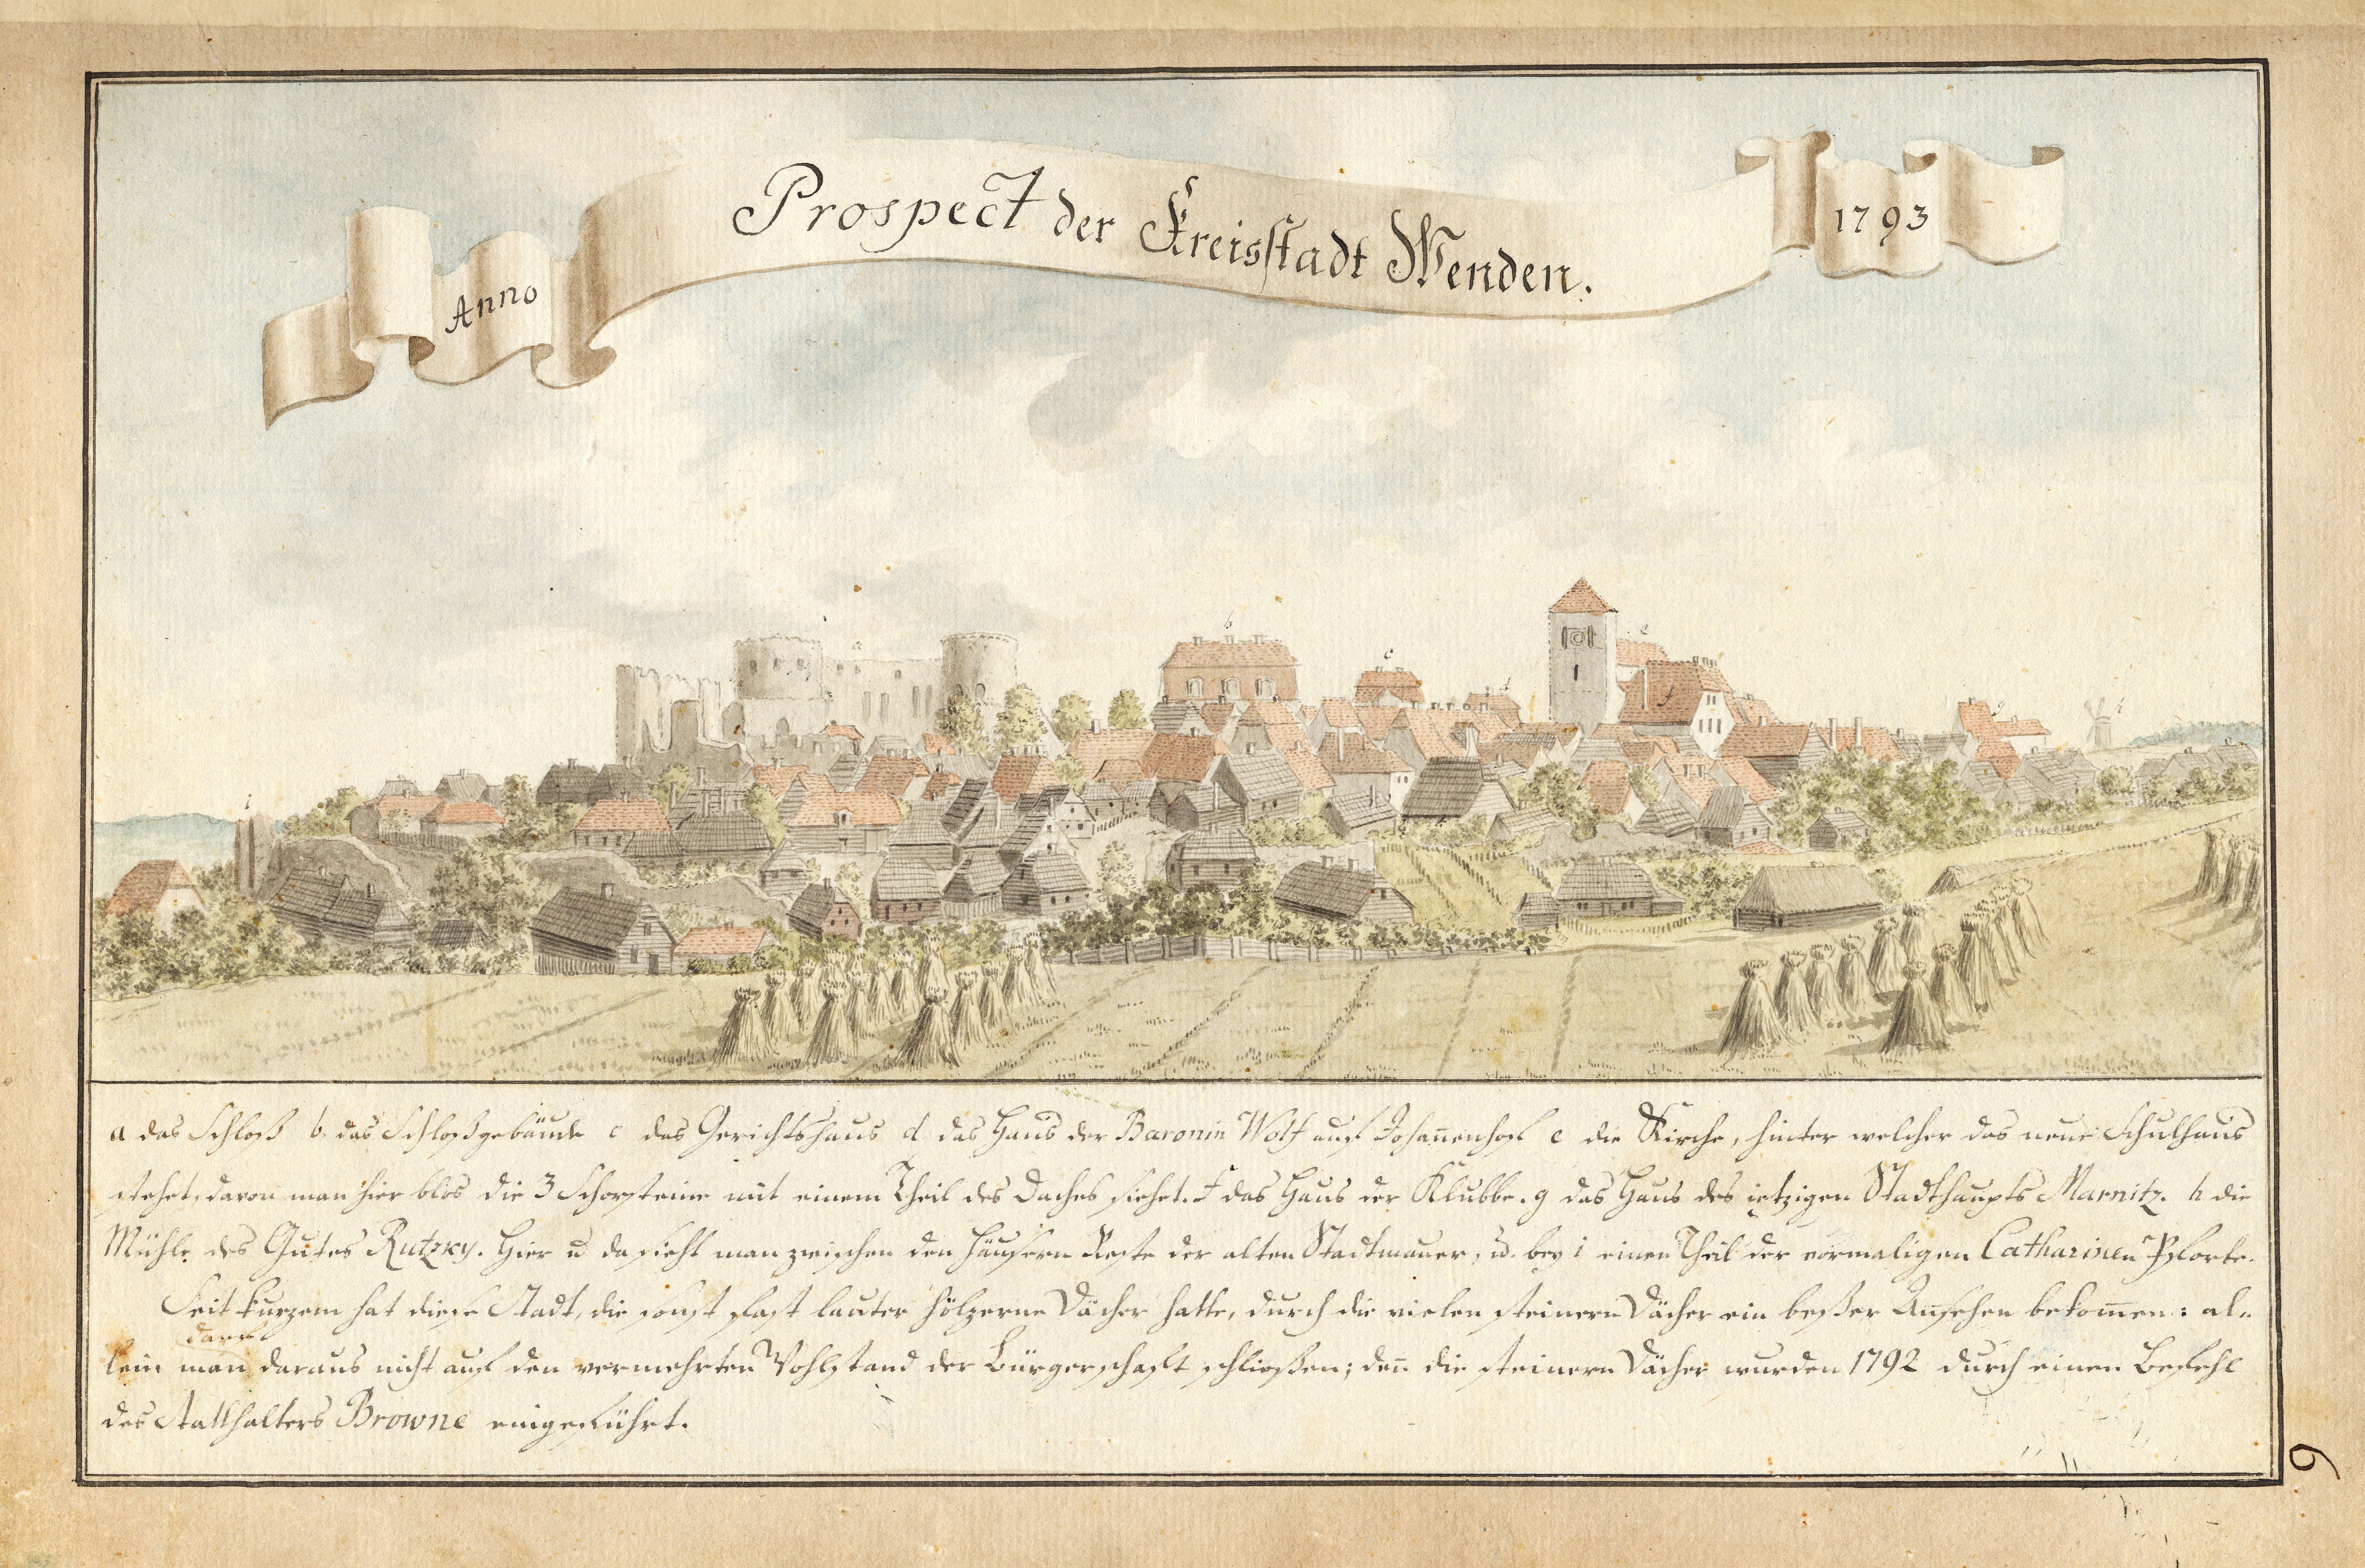 Anno
Prospect der Kreisstadt Wenden.
1793
a
b
c
d
e
f
g
h
i
a das Schloß b. das Schloßgebäude c das Gerichtshaus d das Haus der Baronin Wolf auf Johan̄enhof e die Kirche, hinter welcher das neue Schulhaus
stehet, davon man hier blos die 3 Schorsteine mit einem Theil des Daches siehet. f das Haus der Klubbe. g das Haus des ietzigen Stadthaupts Marnitz. h die
Mühle des Gutes Rutzky. Hier u da sieht man zwischen den Häusern Reste der alten Stadtmauer, u. bey i einen Theil der vormaligen Catharinen Pforte.
Seit kurzem hat diese Stadt, die sonst fast lauter hölzerne Dächer hatte, durch die vielen steinern Dächer ein beßer Ansehen bekom̄en: al-
darf
lein man daraus nicht auf den vermehrten Wohlstand der Bürgerschaft schließen; den̄ die steinern Dächer wurden 1792 durch einen Befehl
des Statthalters Browne eingeführt.
9